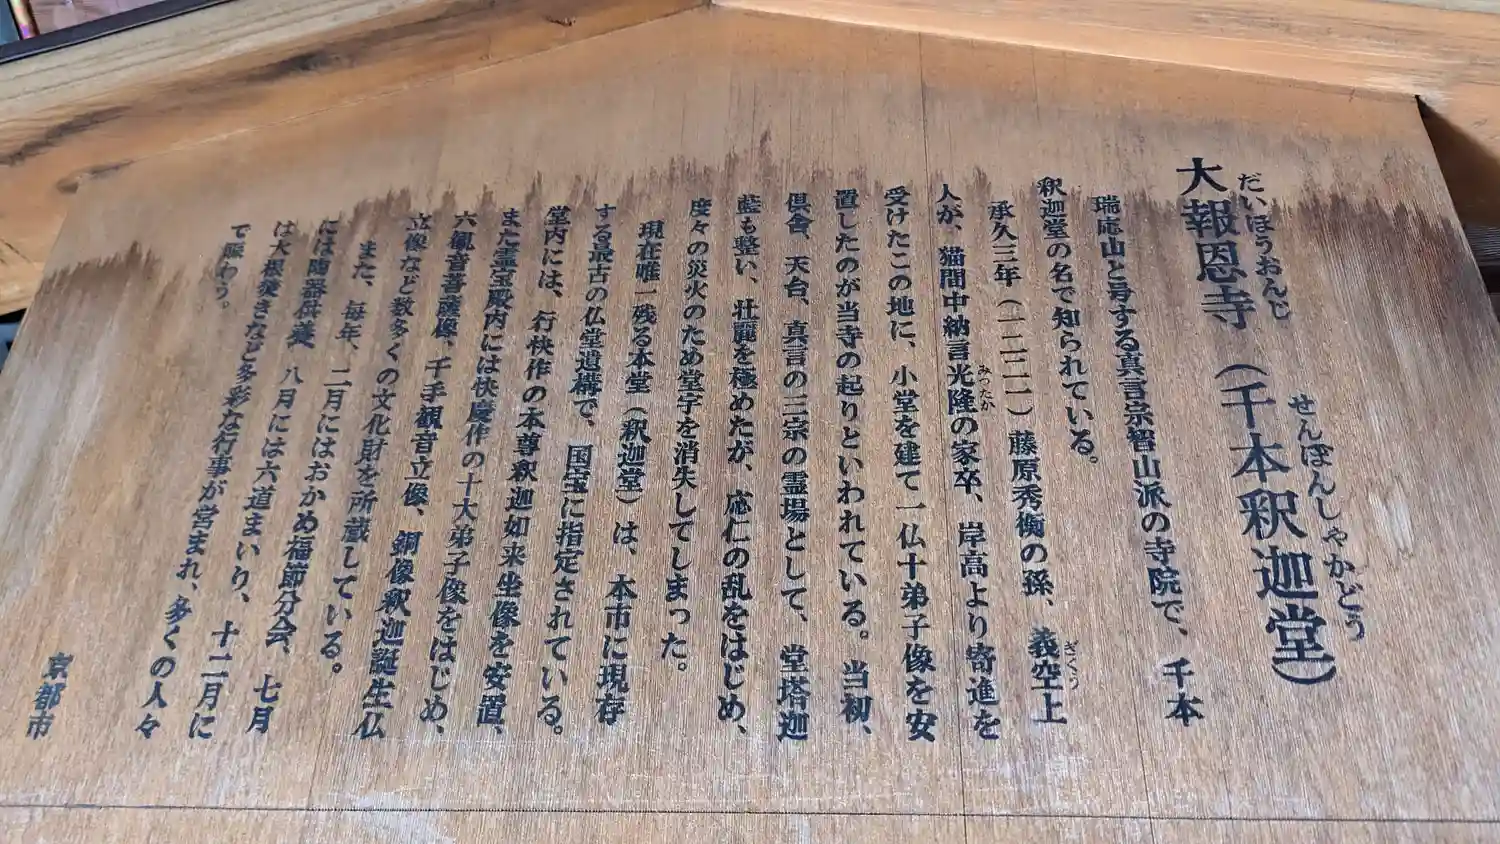 大報恩寺（千本釈迦堂）
だいほうおんじ
せんぼんしゃかどう
瑞応山と号する真言宗智山派の寺院で、千本
釈迦堂の名で知られている。
承久三年（一二二一）藤原秀衡の孫、義空上
ぎくう
人が、猫間中納言光隆の家卒、岸高より寄進を
みつたか
受けたこの地に、小堂を建て一仏十弟子像を安
置したのが当寺の起りといわれている。当初、
倶舎、天台、真言の三宗の霊場として、堂塔迦
藍も整い、壮麗を極めたが、応仁の乱をはじめ、
度々の災火のため堂宇を消失してしまった。
現在唯一残る本堂（釈迦堂）は、本市に現存
する最古の仏堂遺構で、国宝に指定されている。
堂内には、行快作の本尊釈迦如来坐像を安置、
また霊宝殿内には快慶作の十大弟子像をはじめ、
六観音菩薩像、千手観音立像、銅像釈迦誕生仏
立像など数多くの文化財を所蔵している。
また、毎年、二月にはおかめ福節分会、七月
には陶器供養、八月には六道まいり、十二月に
は大根焚きなど多彩な行事が営まれ、多くの人々
で賑わう。
京都市